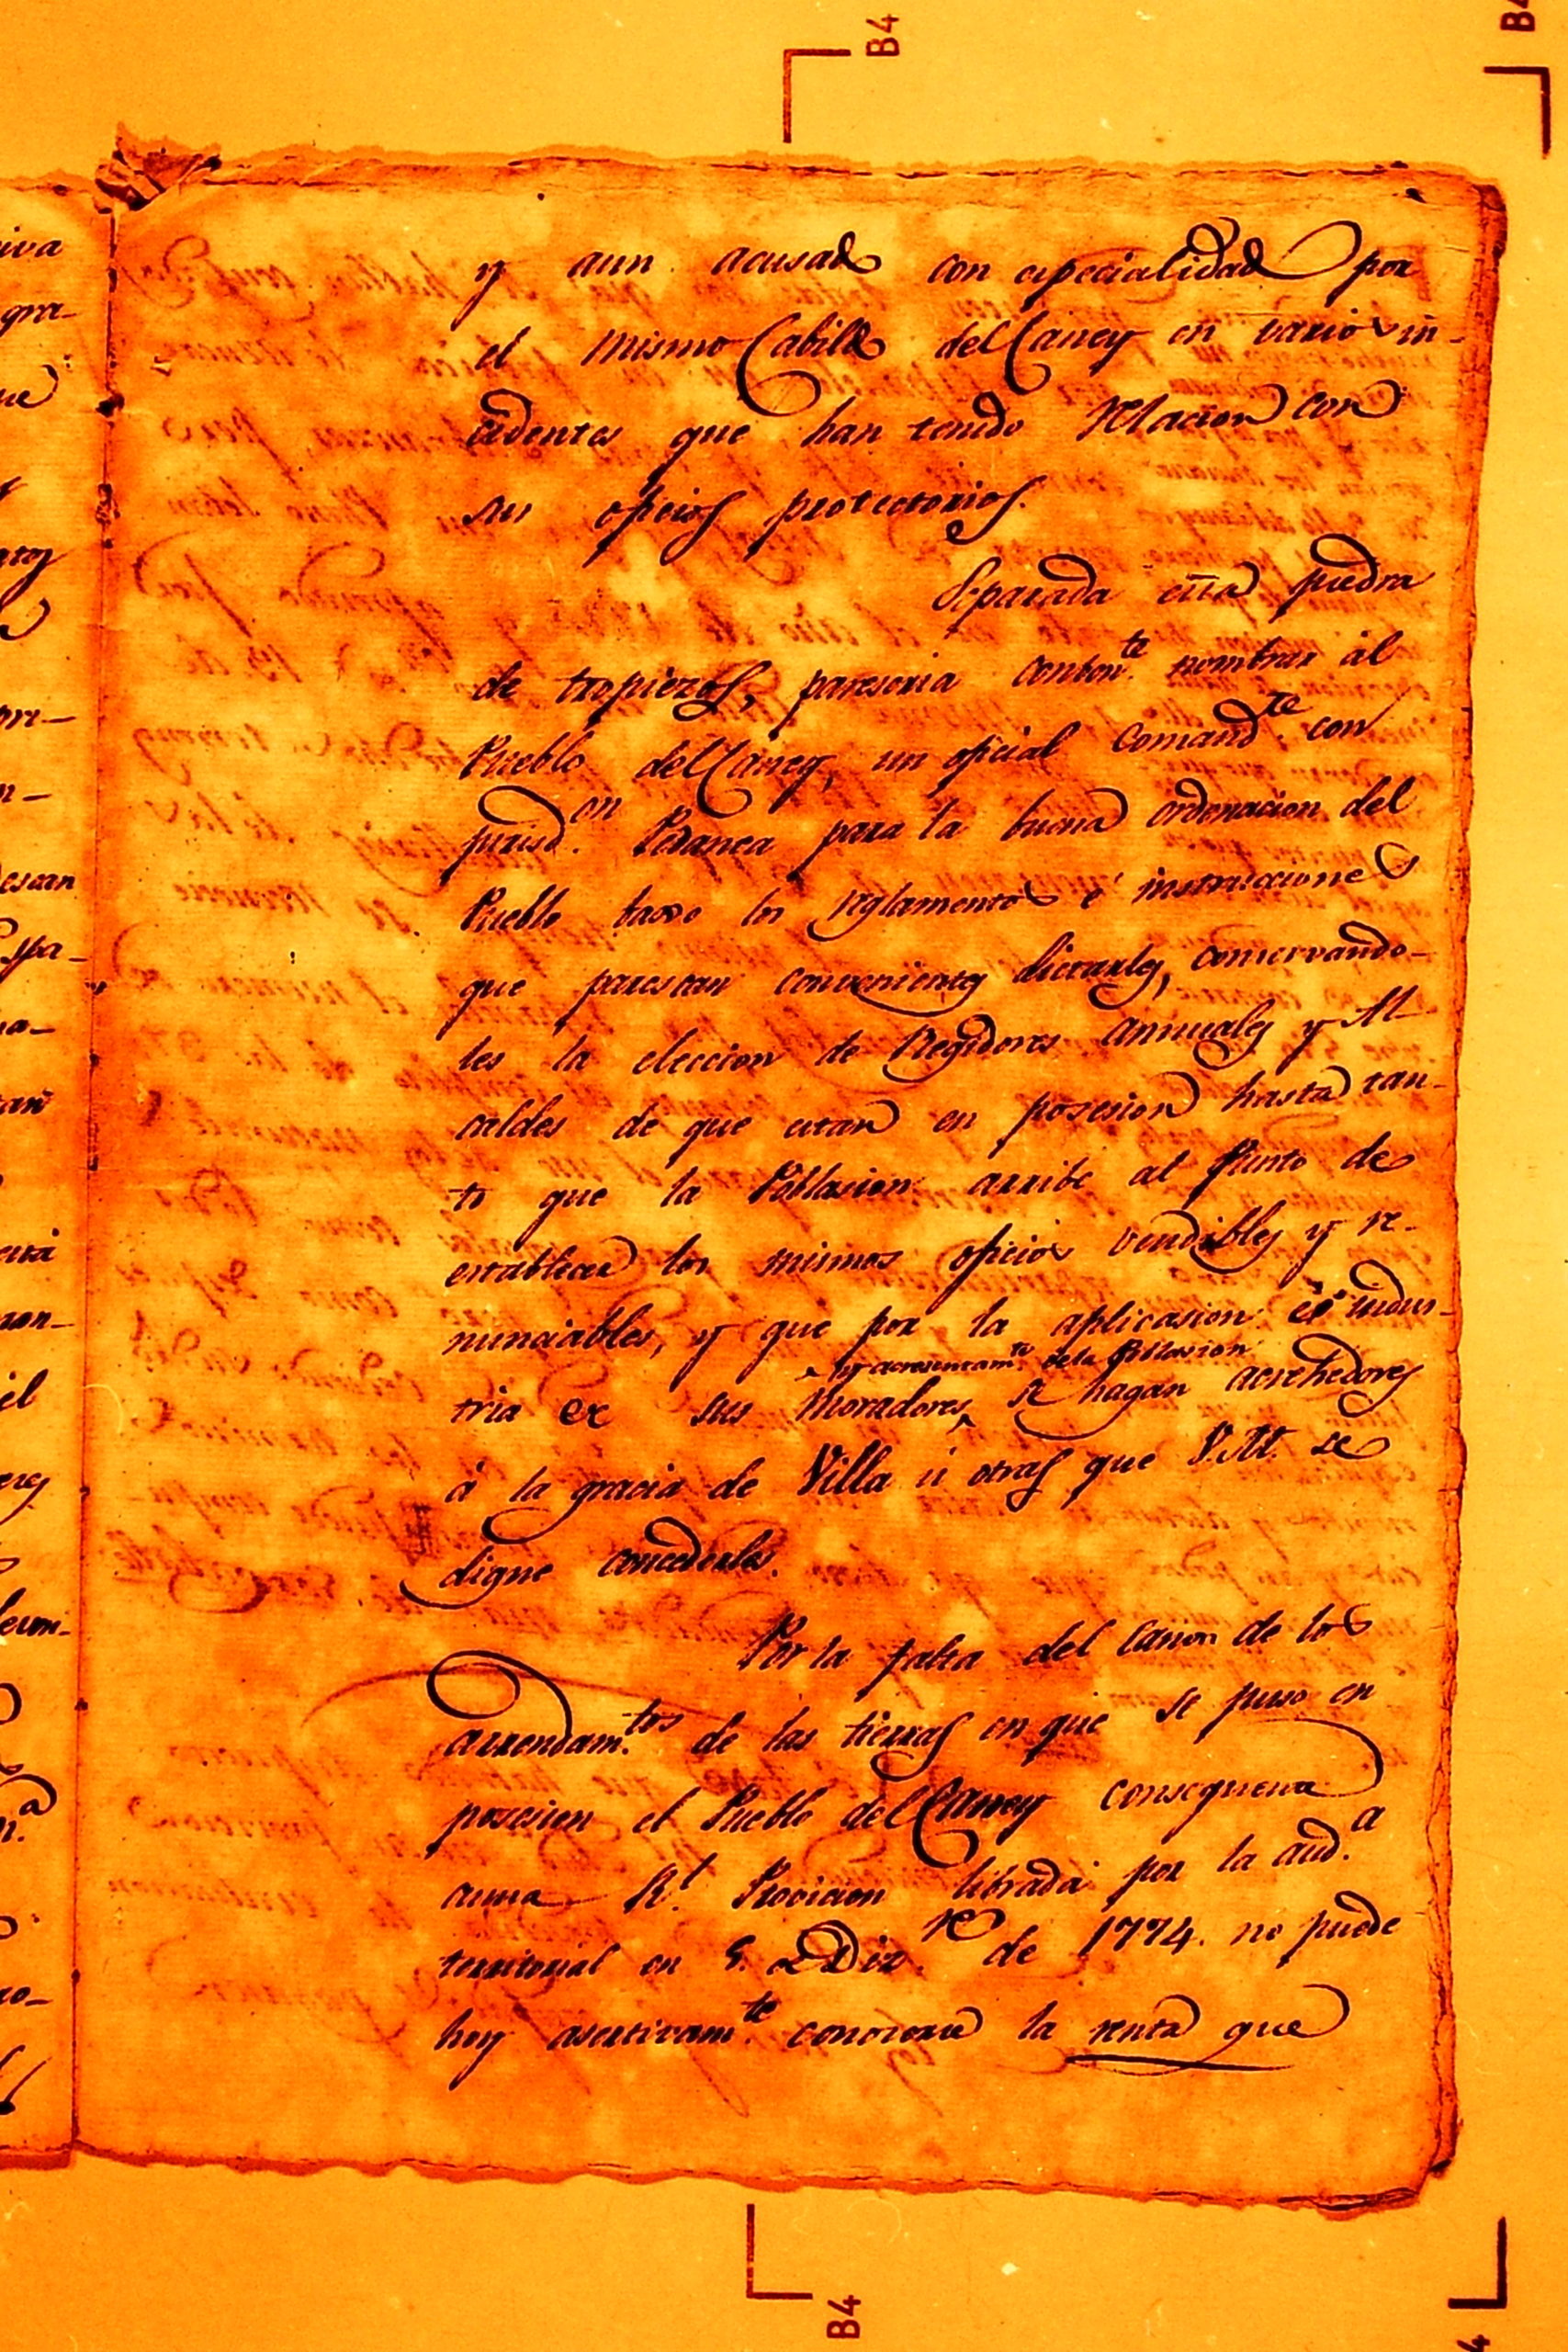 B4
B4
y aun acusado con especialidad por
el mismo Cabildo del Caney en varios in-
cidentes que han tenido relacion con
sus oficios protectorios.
Separada esta piedra
de tropiezos, pareseria combente. nombrar al
Pueblo del Caney, un oficial Comandte. con
jurisdon. Pedanea para la buena ordenacion del
Pueblo baxo los reglamentos é instrucciones
que parescan convenientes dictarles, conservando-
les la eleccion de Regidores annuales y Al
caldes de que estan en posesion hasta tan-
to que la Poblasion arribe al punto de
establecer los mismos oficios vendibles y re-
nunciables, y que por la aplicasion é indus-
y acresentamte. de la Poblasion
tria de sus Moradores se hagan acrehedores
á la gracia de Villa ú otras que V.M. se
digne concederles.
Por la falta del Canon de los
arrendam.tos de las tierras en que se puso en
posesion el Pueblo del Caney consequente
auna Rl. Provicion librada por la aud.a
territorial en de Dizre. de 1774. no puede
hoy asertivamte. conocerse la renta que
B4